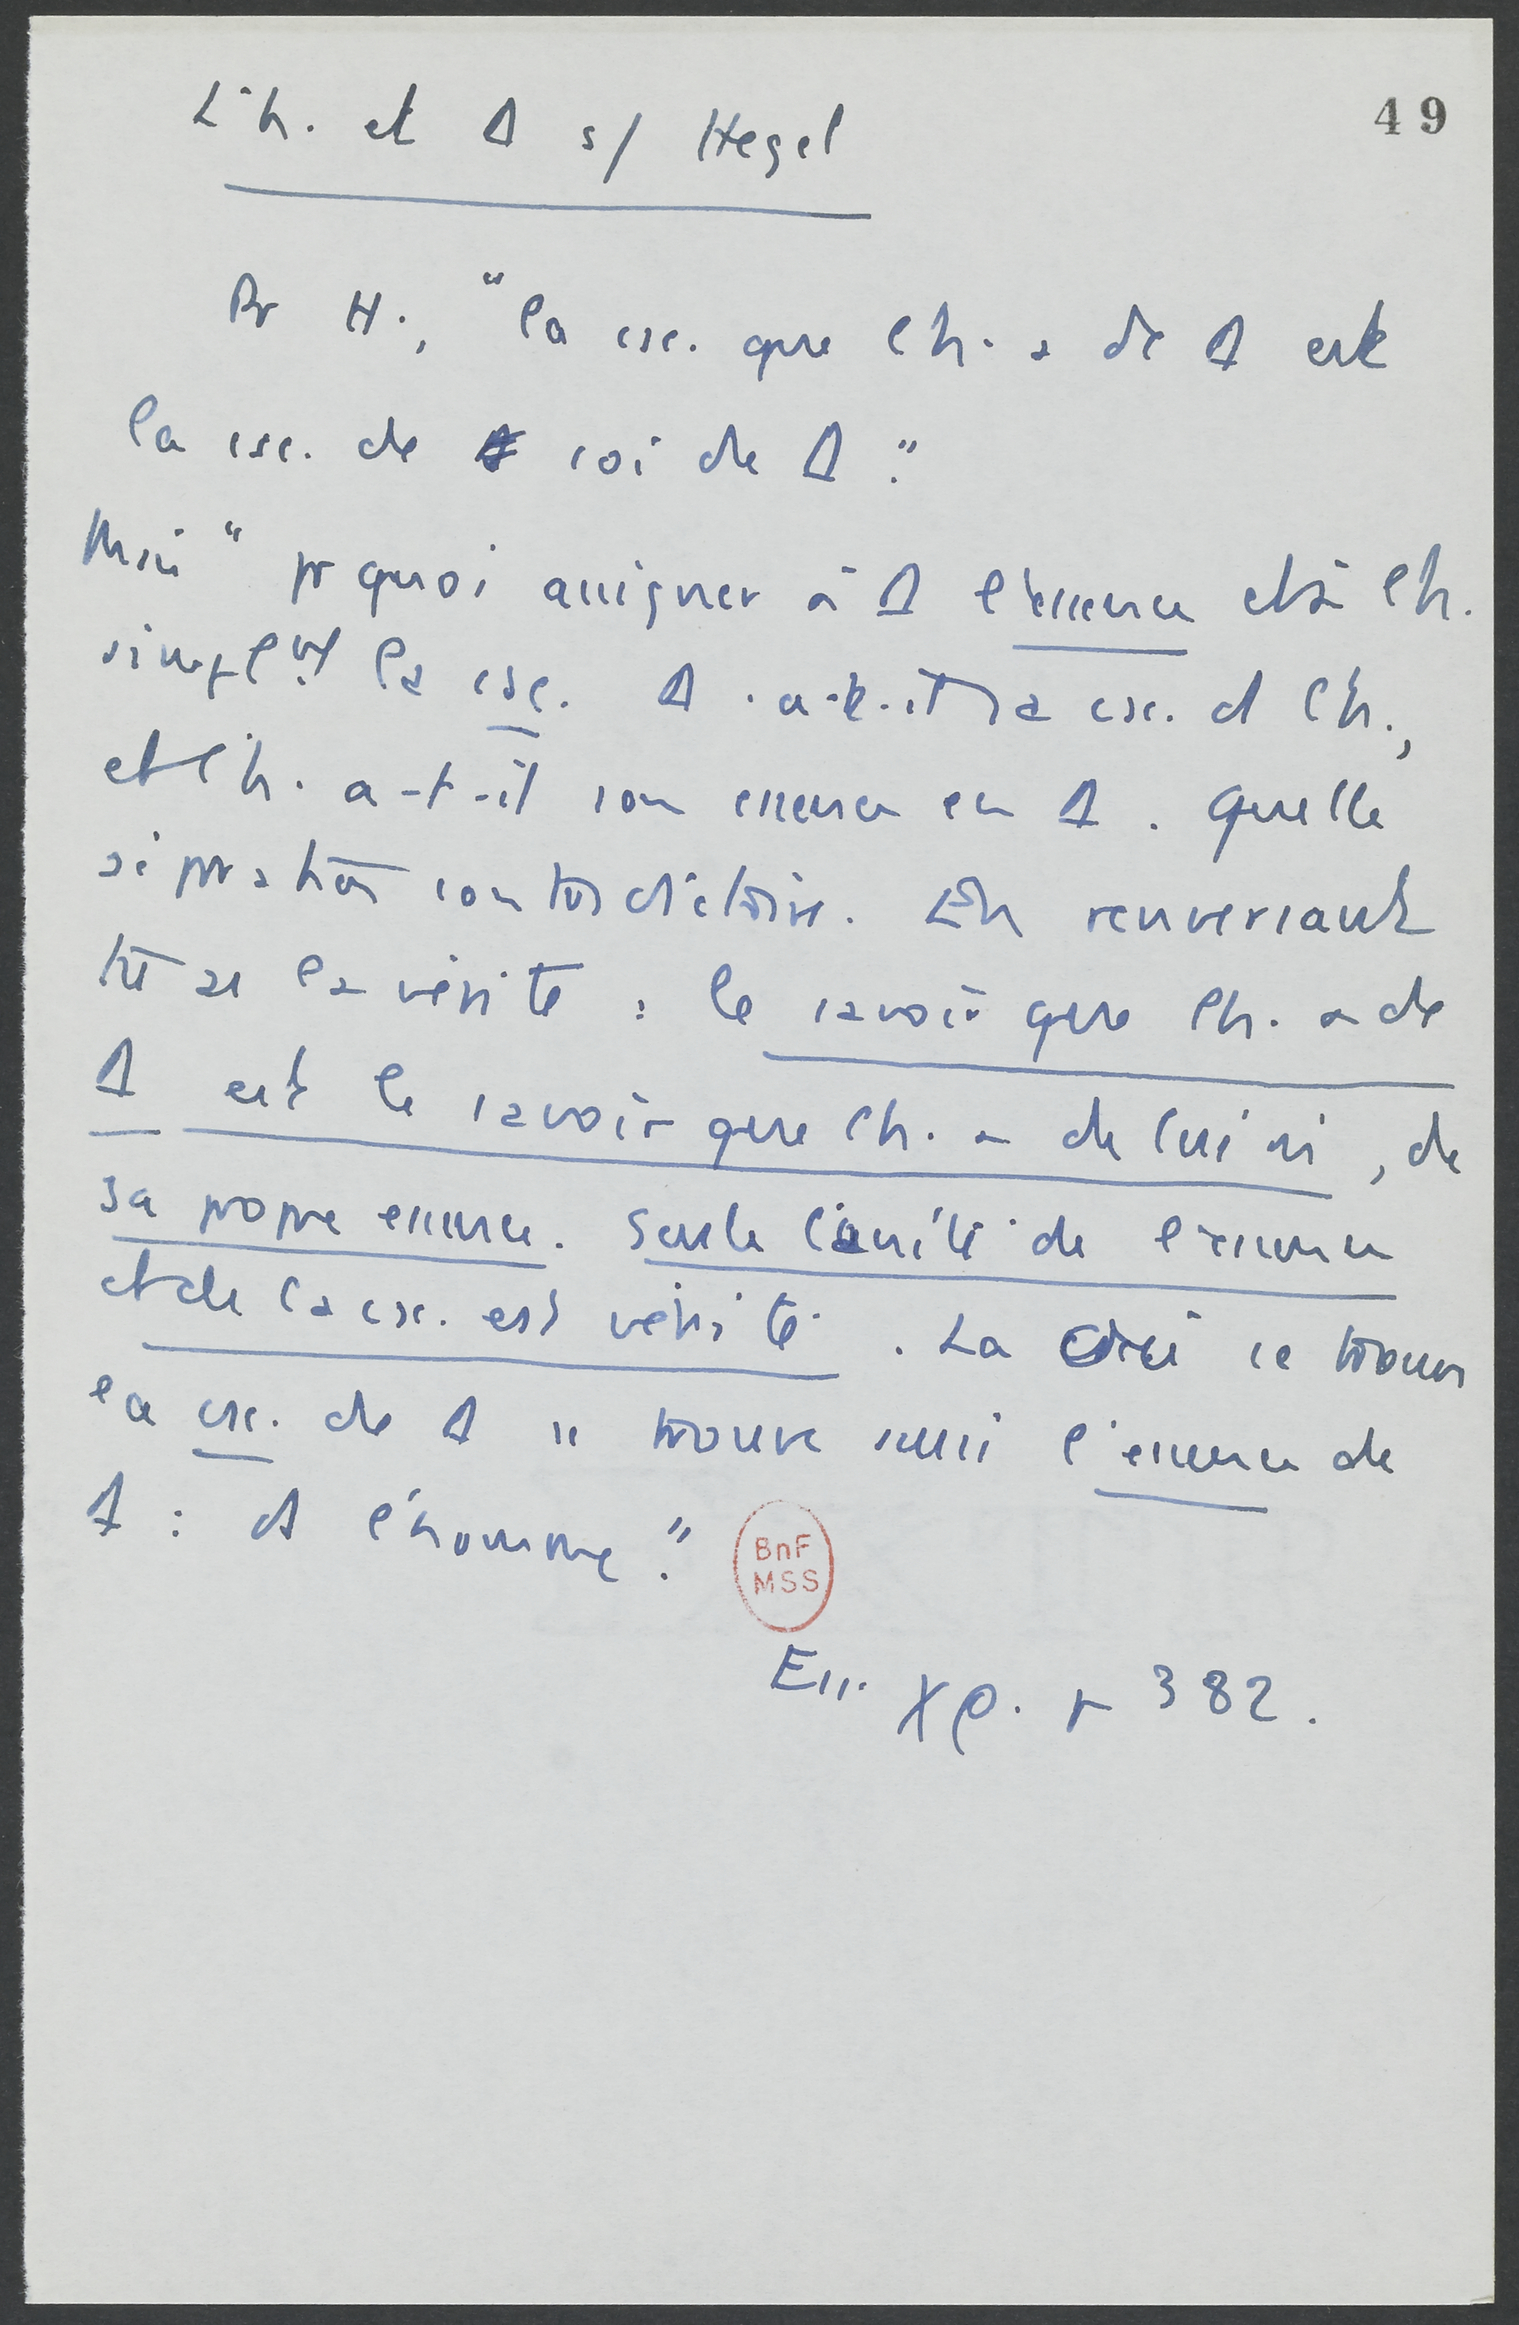 49
L'h. et Δ s/ Hegel
Pr H., "la csc. que l'h. a de Δ est
la csc. de soi de Δ."
Mais "pr quoi assigner à Δ l'essence et à l'h.
simplemt la csc. Δ a-t-il sa csc. ds l'h.,
et l'h. a-t-il son essence en Δ. Quelle
séparation contradictoire. En renversant
tt as la vérité : le savoir que l'h. a de
Δ est le savoir que l'h. a de lui m̂, de
sa propre essence. Seule l'unité de l'essence
et de la csc. est vérité. Là où se trouve
la csc. de Δ se trouve aussi l'essence de
Δ : ds l'homme."
BnF
MSS
Ess. χρ. p 382.